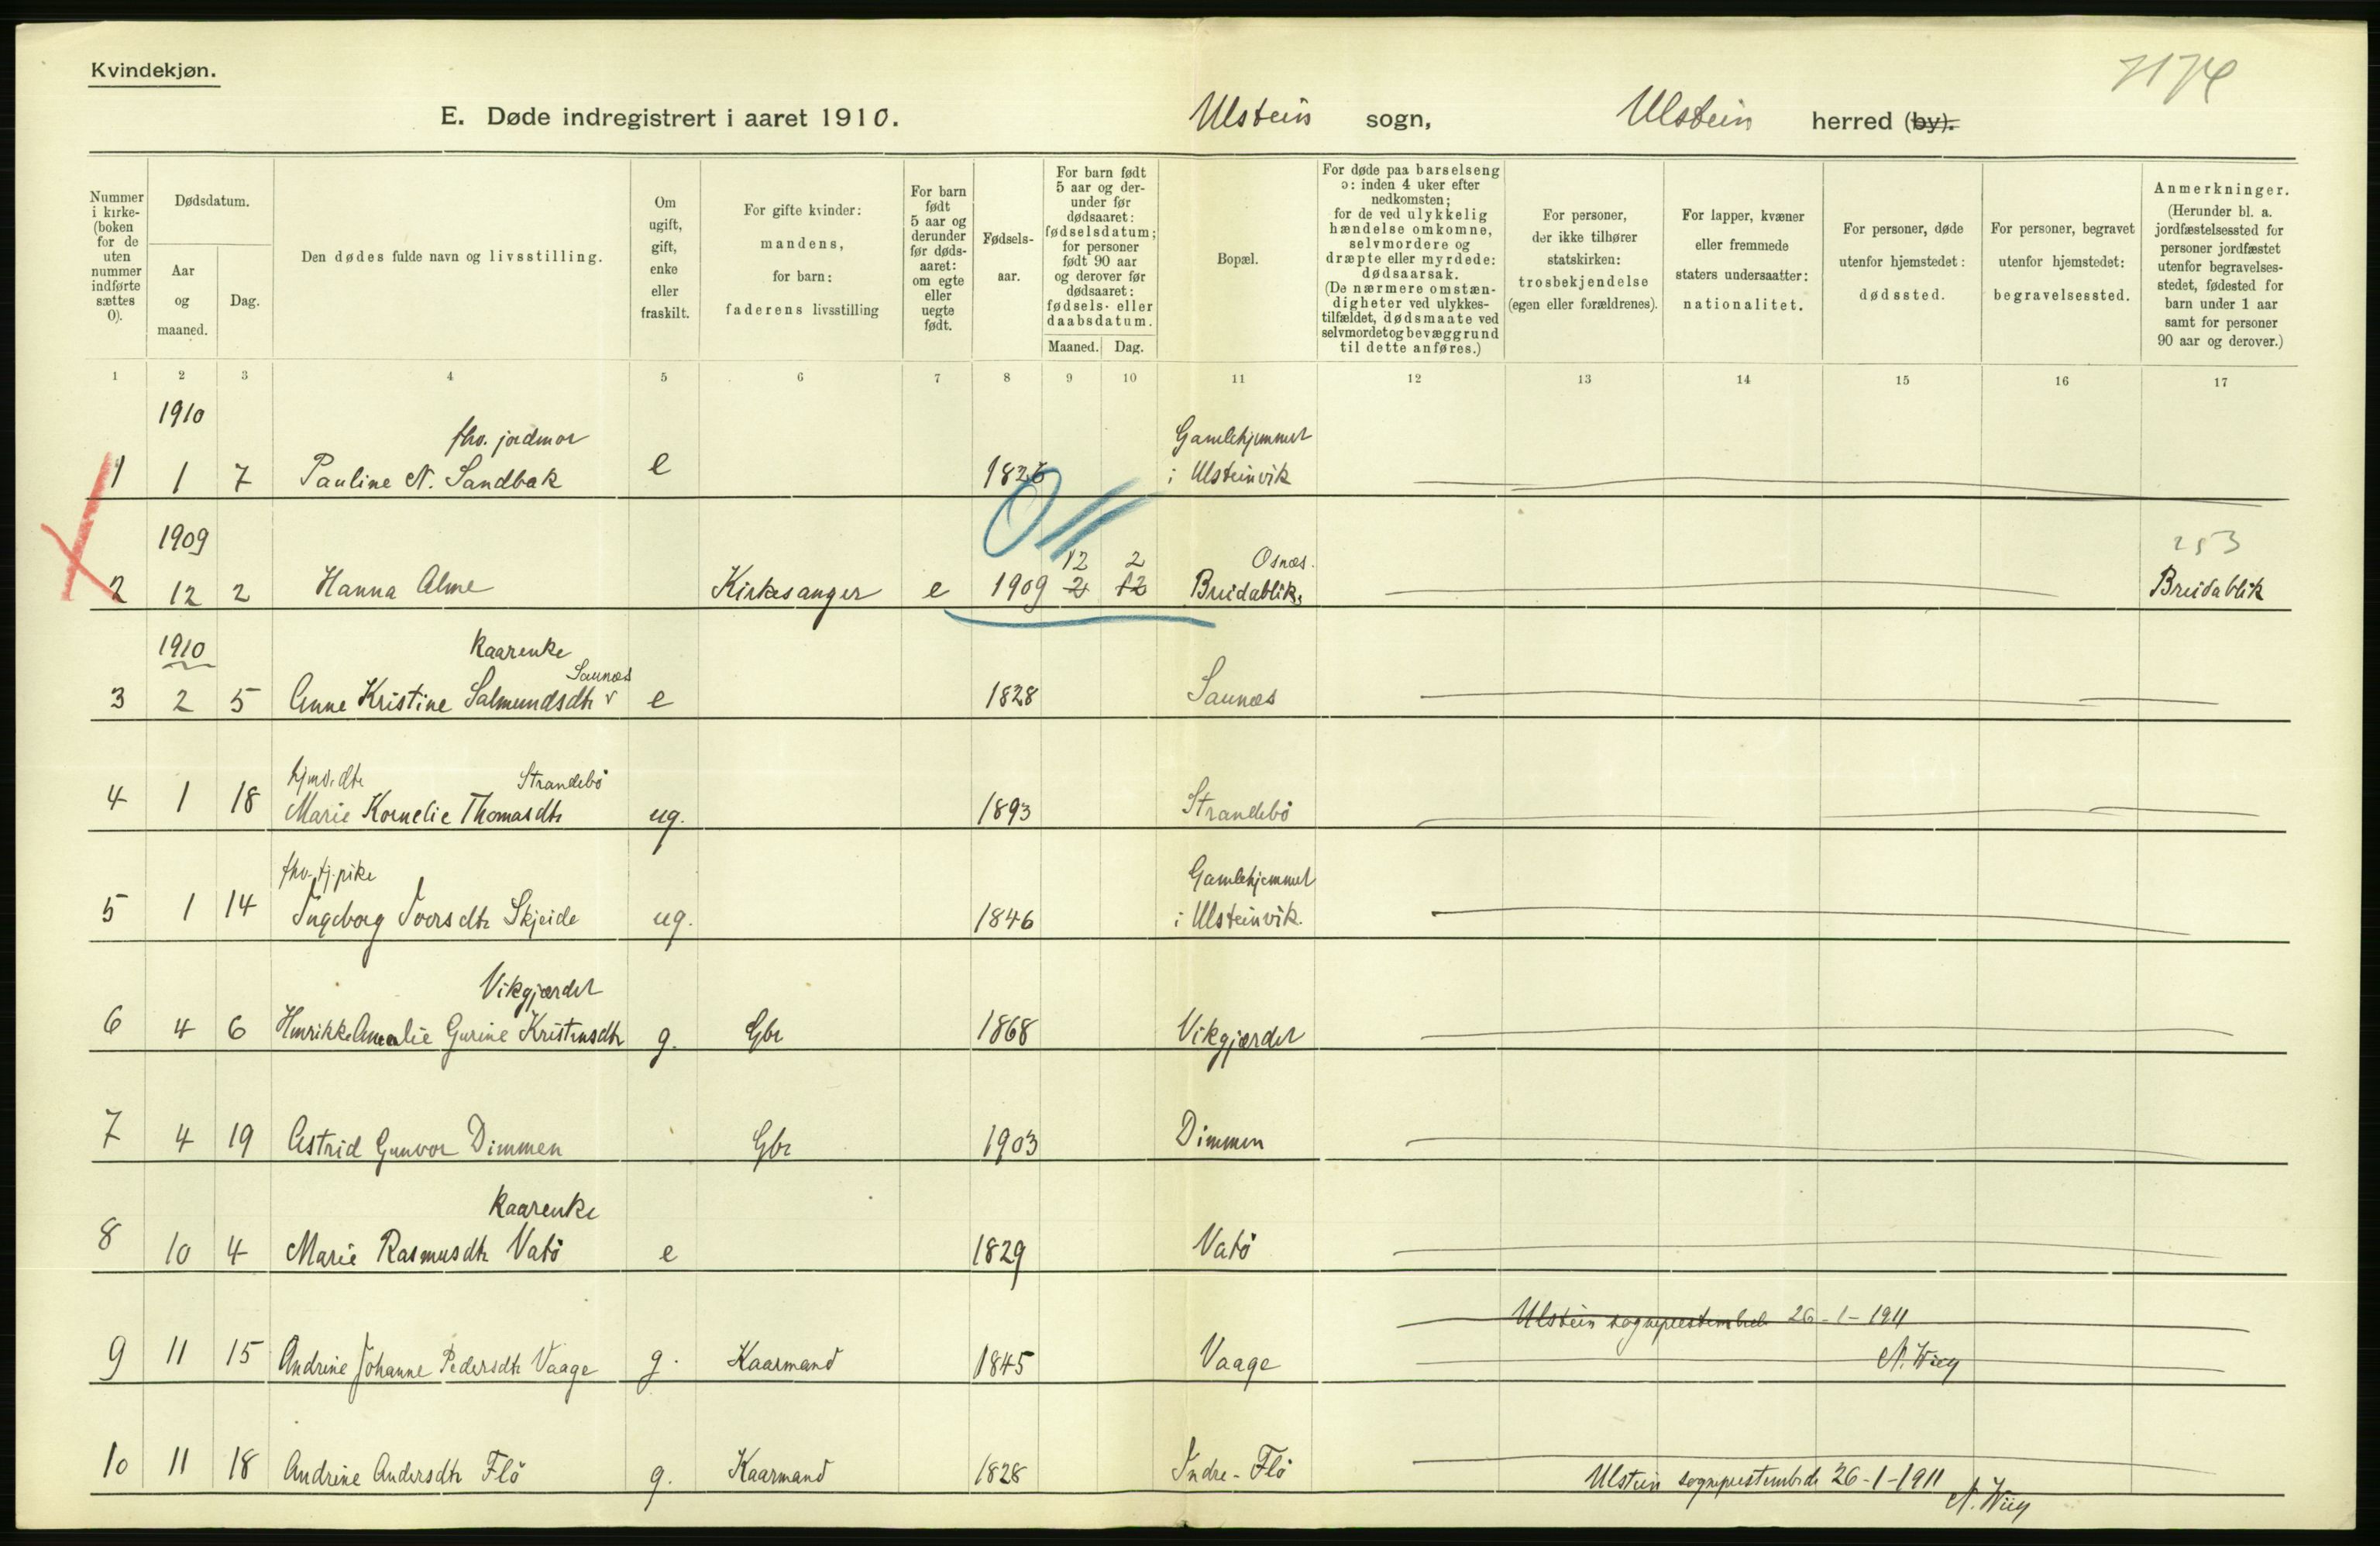 Kvindekjøn.
7174
E. Døde indregistrert i aaret 1910. Ulstein sogn, Ulstein herred (by).
Nummer i kirke- (boken for de uten nummer indførte sættes 0).
Dødsdatum.
Aar og maaned.
Dag.
Den dødes fulde navn og livsstilling.
Om ugift, gift, enke eller fraskilt.
For gifte kvinder: mandens, for barn: faderens livsstilling
For barn født 5 aar og derunder før døds-aaret: om egte eller uegte født.
Fødsels-aar.
For barn født 5 aar og der-under før dødsaaret: fødselsdatum; for personer født 90 aar og derover før dødsaaret: fødsels- eller daabsdatum.
Maaned. Dag.
Bopæl.
For døde paa barselseng ɔ: inden 4 uker efter nedkomsten; for de ved ulykkelig hændelse omkomne, selvmordere og dræpte eller myrdede: dødsaarsak. (De nærmere omstæn-digheter ved ulykkes-tilfældet, dødsmaate ved selvmordet og bevæggrund til dette anføres.)
For personer, der ikke tilhører statskirken: trosbekjendelse (egen eller forældrenes).
For lapper, kvæner eller fremmede staters undersaatter: nationalitet.
For personer, døde utenfor hjemstedet: dødssted.
For personer, begravet utenfor hjemstedet: begravelsessted.
Anmerkninger. (Herunder bl. a. jordfæstelsessted for personer jordfæstet utenfor begravelses-stedet, fødested for barn under 1 aar samt for personer 90 aar og derover.)
1 2 3 4 5 6 7 8 9 10 11 12 13 14 15 16 17
1910
fhv. jordmor Gamlehjemmet
1 1 7 Pauline N. Sandbak e 1826 i Ulsteinvik
1909 12 2 Osnæs. 253
2 12 2 Hanna Alme Kirkesanger e 1909 2 12 Breidablik, Breidablik
1910 Kaarenke
Saunæs
3 2 5 Anne Kristine Salmundsdtr v e 1828 Saunæs
hjmv. dtr Strandebö
4 1 18 Marie Kornelie Thomasdtr ug. 1893 Strandebö
fhv. tj. pike Gamlehjemmet
5 1 14 Ingeborg Iversdtr Skjeide ug. 1846 i Ulsteinvik.
Vikgjærdet
6 4 6 Henrikke Amalie Gurine Kristensdtr g. Gbr 1868 Vikgjærdet
7 4 19 Astrid Gunvor Dimmen Gbr 1903 Dimmen
Kaarenke
8 10 4 Marie Rasmusdtr Vatö e 1829 Vatö
Ulstein sogneprestembede 26-1-1911
9 11 15 Andrine Johanne Pedersdtr Vaage g. Kaarmand 1845 Vaage N. Wiig
10 11 18 Andrine Andersdtr Flö g. Kaarmand 1828 Indre-Flö
Ulstein sogneprestembede 26-1-1911 N. Wiig